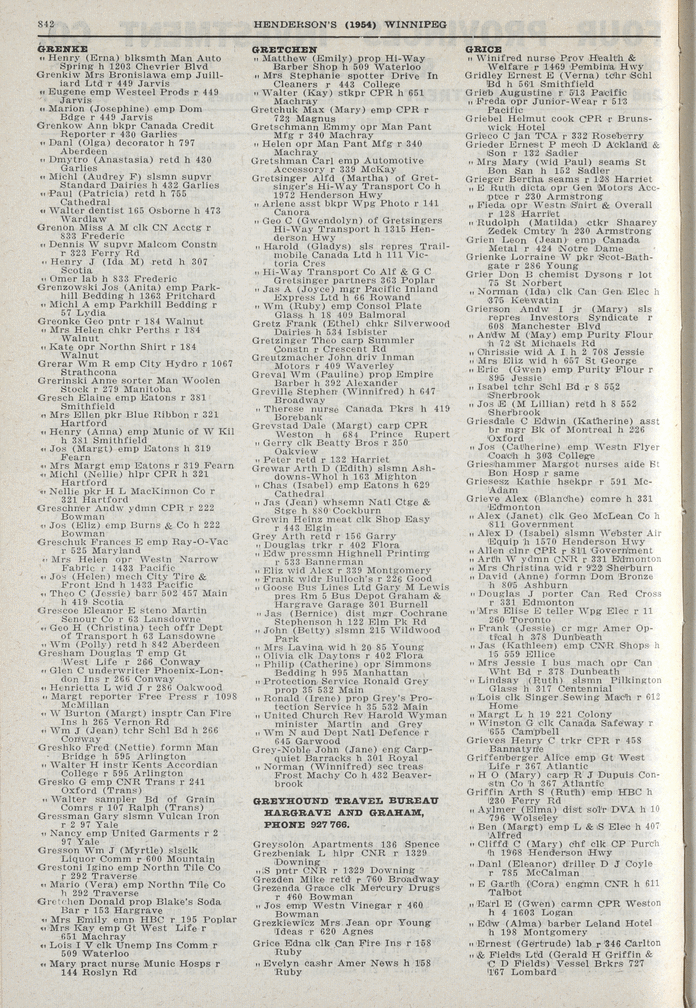 842
HENDERSON'S (1954) WINNIPEG
GRENKE
" Henry (Erna) blksmth Man Auto
Spring h 1203 Chevrier Blvd
Grenkiw Mrs Bronislawa emp Juill-
iard Ltd r 449 Jarvis
" Eugene emp Westeel Prods r 449
Jarvis
" Marion (Josephine) emp Dom
Bdge r 449 Jarvis
Grenkow Ann bkpr Canada Credit
Reporter r 430 Garlies
" Danl (Olga) decorator h 797
Aberdeen
" Dmytro (Anastasia) retd h 430
Garlies
" Michl (Audrey F) slsmn supvr
Standard Dairies h 432 Garlies
" Paul (Patricia) retd h 755
Cathedral
" Walter dentist 165 Osborne h 473
Wardlaw
Grenon Miss A M clk CN Acctg r
833 Frederic
" Dennis W supvr Malcom Constn
r 323 Ferry Rd
" Henry J (Ida M) retd h 307
Scotia
" Omer lab h 833 Frederic
Grenzowski Jos (Anita) emp Park-
hill Bedding h 1363 Pritchard
" Michl A emp Parkhill Bedding r
57 Lydia
Greonke Geo pntr r 184 Walnut
" Mrs Helen chkr Perths r 184
Walnut
" Kate opr Northn Shirt r 184
Walnut
Grerar Wm R emp City Hydro r 1067
Strathcona
Grerinski Anne sorter Man Woolen
Stock r 279 Manitoba
Gresch Elaine emp Eatons r 381
Smithfield
" Mrs Ellen pkr Blue Ribbon r 321
Hartford
" Henry (Anna) emp Munic of W Kil
h 381 Smithfield
" Jos (Margt) emp Eatons h 319
Fearn
" Mrs Margt emp Eatons r 319 Fearn
" Michl (Nellie) hlpr CPR h 321
Hartford
" Nellie pkr H L MacKinnon Co r
321 Hartford
Greschner Andw ydmn CPR r 222
Bowman
" Jos (Eliz) emp Burns & Co h 222
Bowman
Greschuk Frances E emp Ray-O-Vac
r 525 Maryland
" Mrs Helen opr Westn Narrow
Fabric r 1433 Pacific
" Jos (Helen) mech City Tire &
Front End h 1433 Pacific
" Theo C (Jessie) barr 502 457 Main
h 419 Scotia
Grescoe Eleanor E steno Martin
Senour Co r 63 Lansdowne
" Geo H (Christina) tech offr Dept
of Transport h 63 Lansdowne
" Wm (Polly) retd h 842 Aberdeen
Gresham Douglas T emp Gt
West Life r 266 Conway
" Glen C underwriter Phoenix-Lon-
don Ins r 266 Conway
" Henrietta L wid J r 286 Oakwood
" Margt reporter Free Press r 1098
McMillan
" W Burton (Margt) insptr Can Fire
Ins h 265 Vernon Rd
" Wm J (Jean) tchr Schl Bd h 266
Conway
Greshko Fred (Nettie) formn Man
Bridge h 595 Arlington
" Walter H instr Kents Accordian
College r 595 Arlington
Gresko G emp CNR Trans r 241
Oxford (Trans)
" Walter sampler Bd of Grain
Comrs r 107 Ralph (Trans)
Gressman Gary slsmn Vulcan Iron
r 2 97 Yale
" Nancy emp United Garments r 2
97 Yale
Gresson Wm J (Myrtle) slsclk
Liquor Comm r 600 Mountain
Grestoni Igino emp Northn Tile Co
r 292 Traverse
" Mario (Vera) emp Northn Tile Co
h 292 Traverse
Gretchen Donald prop Blake's Soda
Bar r 153 Hargrave
" Mrs Emily emp HBC r 195 Poplar
" Mrs Kay emp Gt West Life r
651 Machray
" Lois I V clk Unemp Ins Comm r
509 Waterloo
" Mary pract nurse Munic Hosps r
144 Roslyn Rd
GRETCHEN
" Matthew (Emily) prop Hi-Way
Barber Shop h 509 Waterloo
" Mrs Stephanie spotter Drive In
Cleaners r 443 College
" Walter (Kay) stkpr CPR h 651
Machray
Gretchuk Max (Mary) emp CPR r
723 Magnus
Gretschmann Emmy opr Man Pant
Mfg r 340 Machray
" Helen opr Man Pant Mfg r 340
Machray
Gretshman Carl emp Automotive
Accessory r 339 McKay
Gretsinger Alfd (Martha) of Gret-
singer's Hi-Way Transport Co h
1972 Henderson Hwy
" Arlene asst bkpr Wpg Photo r 141
Canora
" Geo C (Gwendolyn) of Gretsingers
Hi-Way Transport h 1315 Hen-
derson Hwy
" Harold (Gladys) sls repres Trail-
mobile Canada Ltd h 111 Vic-
toria Cres
" Hi-Way Transport Co Alf & G C
Gretsinger partners 363 Poplar
" Jas A (Joyce) mgr Pacific Inland
Express Ltd h 66 Rowand
" Wm (Ruby) emp Consol Plate
Glass h 18 409 Balmoral
Gretz Frank (Ethel) chkr Silverwood
Dairies h 534 Isbister
Gretzinger Theo carp Summler
Constn r Crescent Rd
Greutzmacher John driv Inman
Motors r 409 Waverley
Greval Wm (Pauline) prop Empire
Barber h 392 Alexander
Greville Stephen (Winnifred) h 647
Broadway
" Therese nurse Canada Pkrs h 419
Borebank
Grevstad Dale (Margt) carp CPR
Weston h 684 Prince Rupert
" Gerry clk Beatty Bros r 350
Oakview
" Peter retd r 132 Harriet
Grewar Arth D (Edith) slsmn Ash-
downs-Whol h 163 Mighton
" Chas (Isabel) emp Eatons h 629
Cathedral
" Jas (Jean) whsemn Natl Ctge &
Stge h 880 Cockburn
Grewin Heinz meat clk Shop Easy
r 443 Elgin
Grey Arth retd r 156 Garry
" Douglas trkr r 402 Flora
" Edw pressmn Highnell Printing
r 533 Bannerman
" Eliz wid Alex r 339 Montgomery
" Frank widr Bulloch's r 226 Good
" Goose Bus Lines Ltd Gary M Lewis
pres Rm 5 Bus Depot Graham &
Hargrave Garage 301 Burnell
" Jas (Bernice) dist mgr Cochrane
Stephenson h 122 Elm Pk Rd
" John (Betty) slsmn 215 Wildwood
Park
" Mrs Lavina wid h 20 85 Young
" Olivia clk Daytons r 402 Flora
" Philip (Catherine) opr Simmons
Bedding h 995 Manhattan
" Protection Service Ronald Grey
prop 35 532 Main
" Ronald (Irene) prop Grey's Pro-
tection Service h 35 532 Main
" United Church Rev Harold Wyman
minister Martin and Grey
" Wm N and Dept Natl Defence r
645 Garwood
Grey-Noble John (Jane) eng Carp-
quiet Barracks h 301 Royal
" Norman (Winifred) sec treas
Frost Machy Co h 432 Beaver-
brook
GREYHOUND TRAVEL BUREAU
HARGRAVE AND GRAHAM,
PHONE 927 766.
Greysolon Apartments 136 Spence
Grezheniak L hlpr CNR r 1329
Downing
" S pntr CNR r 1329 Downing
Grezden Mike retd r 760 Broadway
Grezenda Grace clk Mercury Drugs
r 460 Bowman
" Jos emp Westn Vinegar r 460
Bowman
Grezkiewicz Mrs Jean opr Young
Ideas r 620 Agnes
Grice Edna clk Can Fire Ins r 158
Ruby
" Evelyn cashr Amer News h 158
Ruby
GRICE
" Winifred nurse Prov Health &
Welfare r 1469 Pembina Hwy
Gridley Ernest E (Verna) tchr Schl
Bd h 561 Smithfield
Grieb Augustine r 513 Pacific
" Freda opr Junior-Wear r 513
Pacific
Griebel Helmut cook CPR r Bruns-
wick Hotel
Grieco C jan TCA r 332 Roseberry
Grieder Ernest P mech D Ackland &
Son r 132 Sadler
" Mrs Mary (wid Paul) seams St
Bon San h 152 Sadler
Grieger Bertha seams r 128 Harriet
" E Ruth dicta opr Gen Motors Acc-
ptce r 230 Armstrong
" Fleda opr Westn Shirt & Overall
r 128 Harriet
" Rudolph (Matilda) ctkr Shaarey
Zedek Cmtry h 230 Armstrong
Grien Leon (Jean) emp Canada
Metal r 424 Notre Dame
Grienke Lorraine W pkr Scot-Bath-
gate r 286 Young
Grier Don B chemist Dysons r lot
75 St Norbert
" Norman (Ida) clk Can Gen Elec h
375 Keewatin
Grierson Andw I jr (Mary) sls
repres Investors Syndicate r
608 Manchester Blvd
" Andw M (May) emp Purity Flour
h 72 St Michaels Rd
" Chrissie wid A I h 2 708 Jessie
" Mrs Eliz wid h 657 St George
" Eric (Gwen) emp Purity Flour r
895 Jessie
" Isabel tchr Schl Bd r 8 552
Sherbrook
" Jos E (M Lillian) retd h 8 552
Sherbrook
Griesdale C Edwin (Katherine) asst
br mgr Bk of Montreal h 226
Oxford
" Jos (Catherine) emp Westn Flyer
Coach h 303 College
Grieshammer Margot nurses aide St
Bon Hosp r same
Griesesz Kathie hsekpr r 591 Mc-
Adam
Grieve Alex (Blanche) comre h 331
Edmonton
" Alex (Janet) clk Geo McLean Co h
811 Government
" Alex D (Isabel) slsmn Webster Air
Equip h 1570 Henderson Hwy
" Allen clnr CPR r 811 Government
" Arth W ydmn CNR r 331 Edmonton
" Mrs Christina wid r 922 Sherburn
" David (Anne) formn Dom Bronze
h 805 Ashburn
" Douglas J porter Can Red Cross
r 331 Edmonton
" Mrs Elise E teller Wpg Elec r 11
260 Toronto
" Frank (Jessie) cr mgr Amer Op-
tical h 378 Dunbeath
" Jas (Kathleen) emp CNR Shops h
15 559 Ellice
" Mrs Jessie I bus mach opr Can
Wht Bd r 378 Dunbeath
" Lindsay (Ruth) slsmn Pilkington
Glass h 317 Centennial
" Lois clk Singer Sewing Mach r 612
Home
" Margt L h 19 221 Colony
" Winston G clk Canada Safeway r
655 Campbell
Grieves Henry C trkr CPR r 458
Bannatyne
Griffenberger Alice emp Gt West
Life r 367 Atlantic
" H O (Mary) carp R J Dupuis Con-
stn Co h 367 Atlantic
Griffin Arth S (Ruth) emp HBC h
230 Ferry Rd
" Aylmer (Elma) dist solr DVA h 10
796 Wolseley
" Ben (Margt) emp L & S Elec h 407
Alfred
" Cliffd C (Mary) chf clk CP Purch
h 1968 Henderson Hwy
" Danl (Eleanor) driller D J Coyle
r 785 McCalman
" E Garth (Cora) engmn CNR h 611
Talbot
" Earl E (Gwen) carmn CPR Weston
h 4 1603 Logan
" Edw (Alma) barber Leland Hotel
h 198 Montgomery
" Ernest (Gertrude) lab r 346 Carlton
" & Fields Ltd (Gerald H Griffin &
C D Fields) Vessel Brkrs 727
167 Lombard